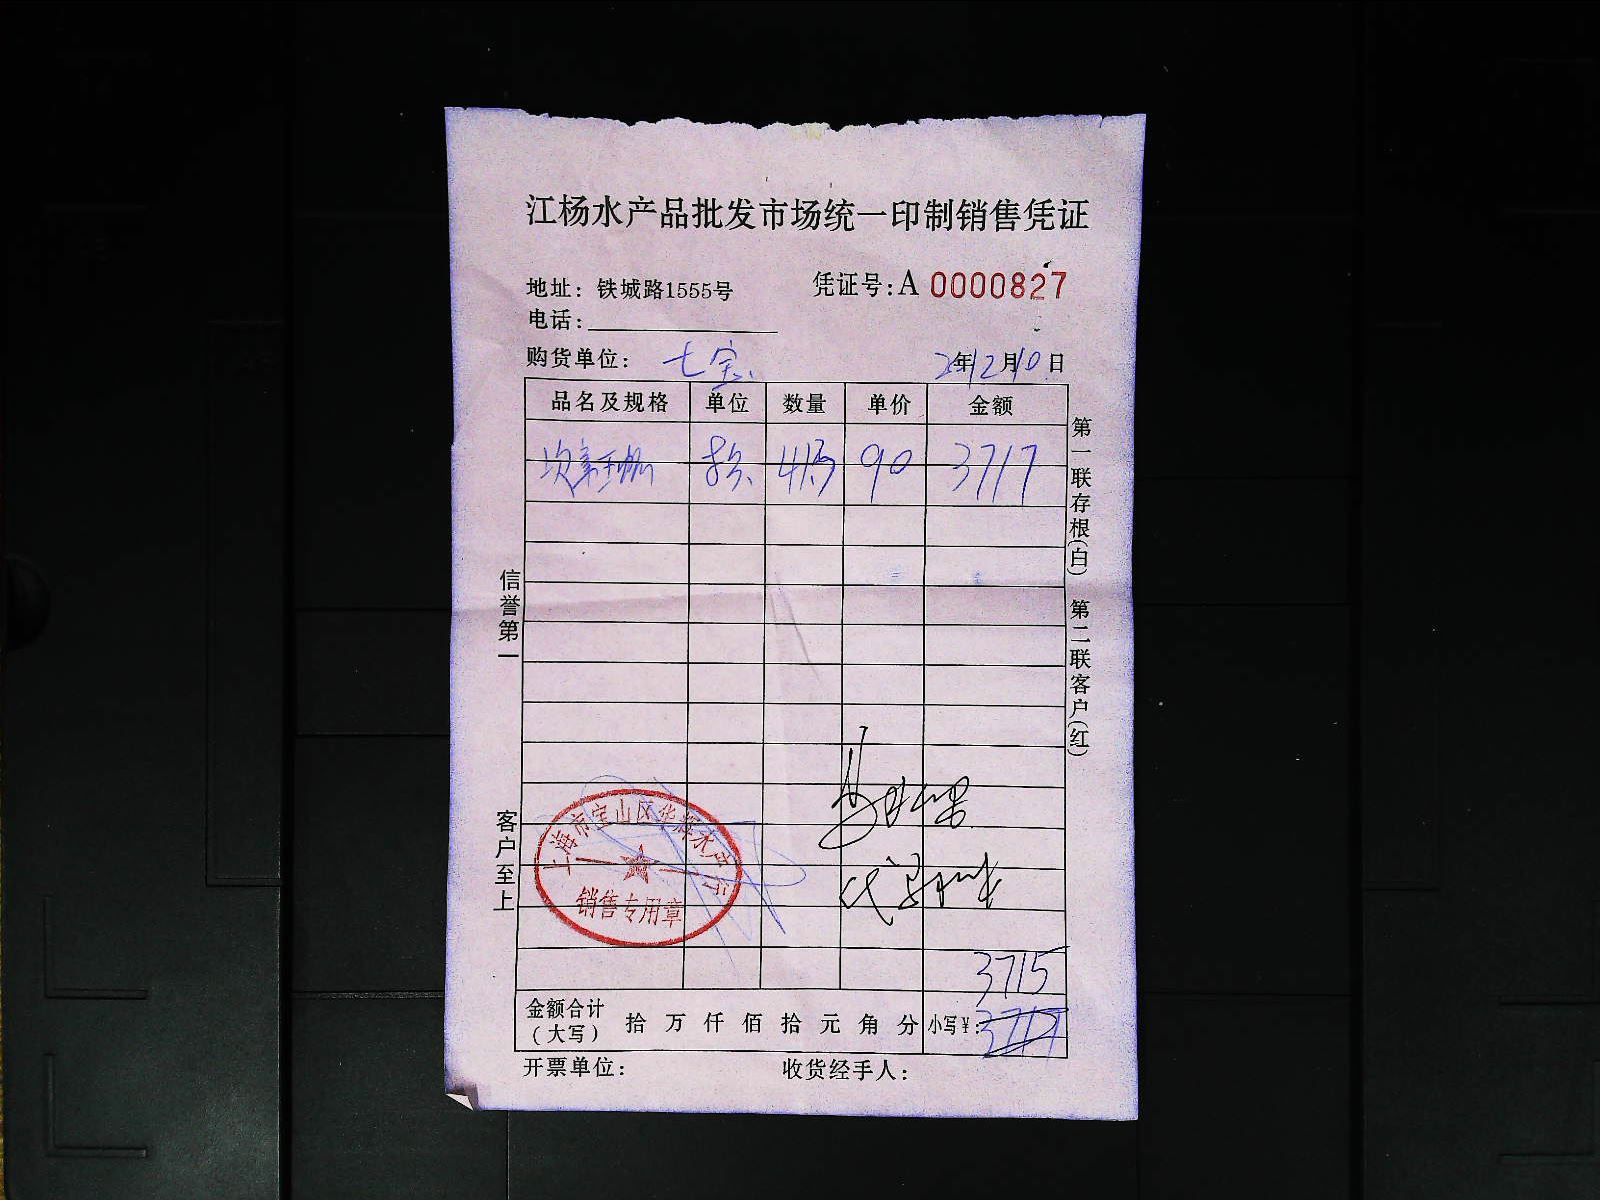 江杨水产品批发市场统一印制销售凭证
地址：铁城路1555号
凭证号：A 0000827
电话：
购货单位：七宝
2年12月10日
品名及规格 单位 数量 单价 金额
90 3717
第一联存根(白) 第二联客户(红)
信誉第一
客户至上
上海市宝山区华辉水产行
销售专用章
3715
金额合计（大写） 拾 万 仟 佰 拾 元 角 分 小写¥：3717
开票单位：
收货经手人：